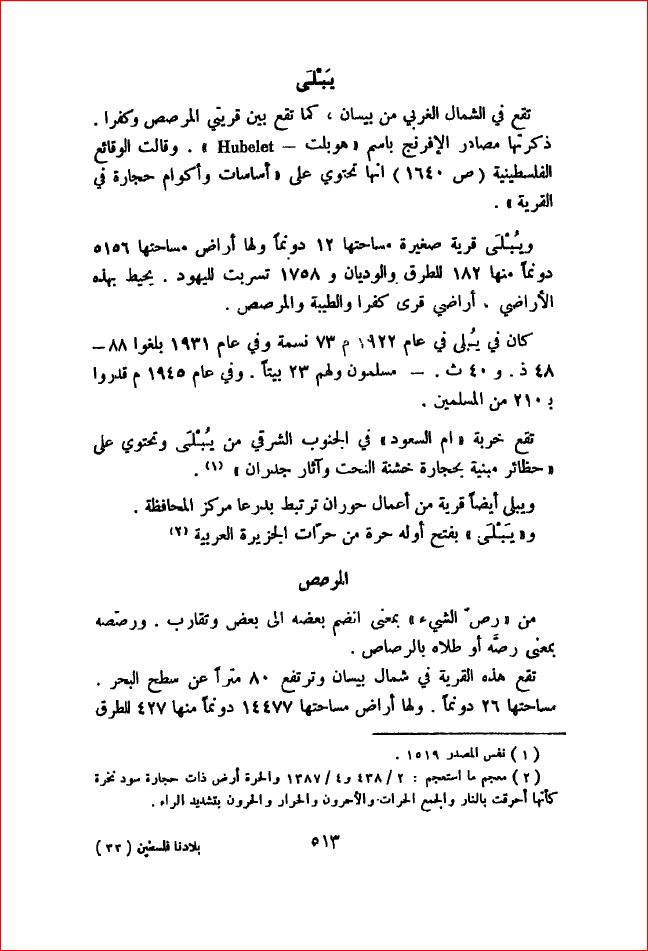 يَبْلَى
تقع في الشمال الغربي من بيسان ، كما تقع بين قريتي المرصص وكفرا .
ذكرتها مصادر الإفرنج باسم « هوبلت – Hubelet » . وقالت الوقائع
الفلسطينية ( ص ١٦٤٠ ) انها تحتوي على « أساسات وأكوام حجارة في
القرية » .
ويُبْلَى قرية صغيرة مساحتها ١٢ دونماً ولها أراض مساحتها ٥١٥٦
دونماً منها ١٨٢ للطرق والوديان و ١٧٥٨ تسربت لليهود . يحيط بهذه
الأراضي ، أراضي قرى كفرا والطيبة والمرصص .
كان في يُبلى في عام ١٩٢٢ م ٧٣ نسمة وفي عام ١٩٣١ بلغوا ٨٨ –
٤٨ ذ . و ٤٠ ث . – مسلمون ولهم ٢٣ بيتاً . وفي عام ١٩٤٥ م قدروا
بـ ٢١٠ من المسلمين .
تقع خربة « ام السعود » في الجنوب الشرقي من يُبْلَى وتحتوي على
« حظائر مبنية بحجارة خشنة النحت وآثار جدران » (١) .
ويبلى أيضاً قرية من أعمال حوران ترتبط بدرعا مركز المحافظة .
و« يَبْلَى » بفتح أوله حرة من حرّات الجزيرة العربية (٢)
المرصص
من « رصّ الشيء » بمعنى انضم بعضه الى بعض وتقارب . ورصّصه
بمعنى رصَّه أو طلاه بالرصاص .
تقع هذه القرية في شمال بيسان وترتفع ٨٠ متراً عن سطح البحر .
مساحتها ٢٦ دونماً . ولها أراض مساحتها ١٤٤٧٧ دونماً منها ٤٢٧ للطرق
( ١ ) نفس المصدر ١٥١٩ .
( ٢ ) معجم ما استعجم : ٢ / ٤٣٨ و ٤ / ١٣٨٧ والحرة أرض ذات حجارة سود نخرة
كأنها أحرقت بالنار والجمع الحرات والأحرون والحرار والحرون بتشديد الراء .
٥١٣
بلادنا فلسطين ( ٣٣ )